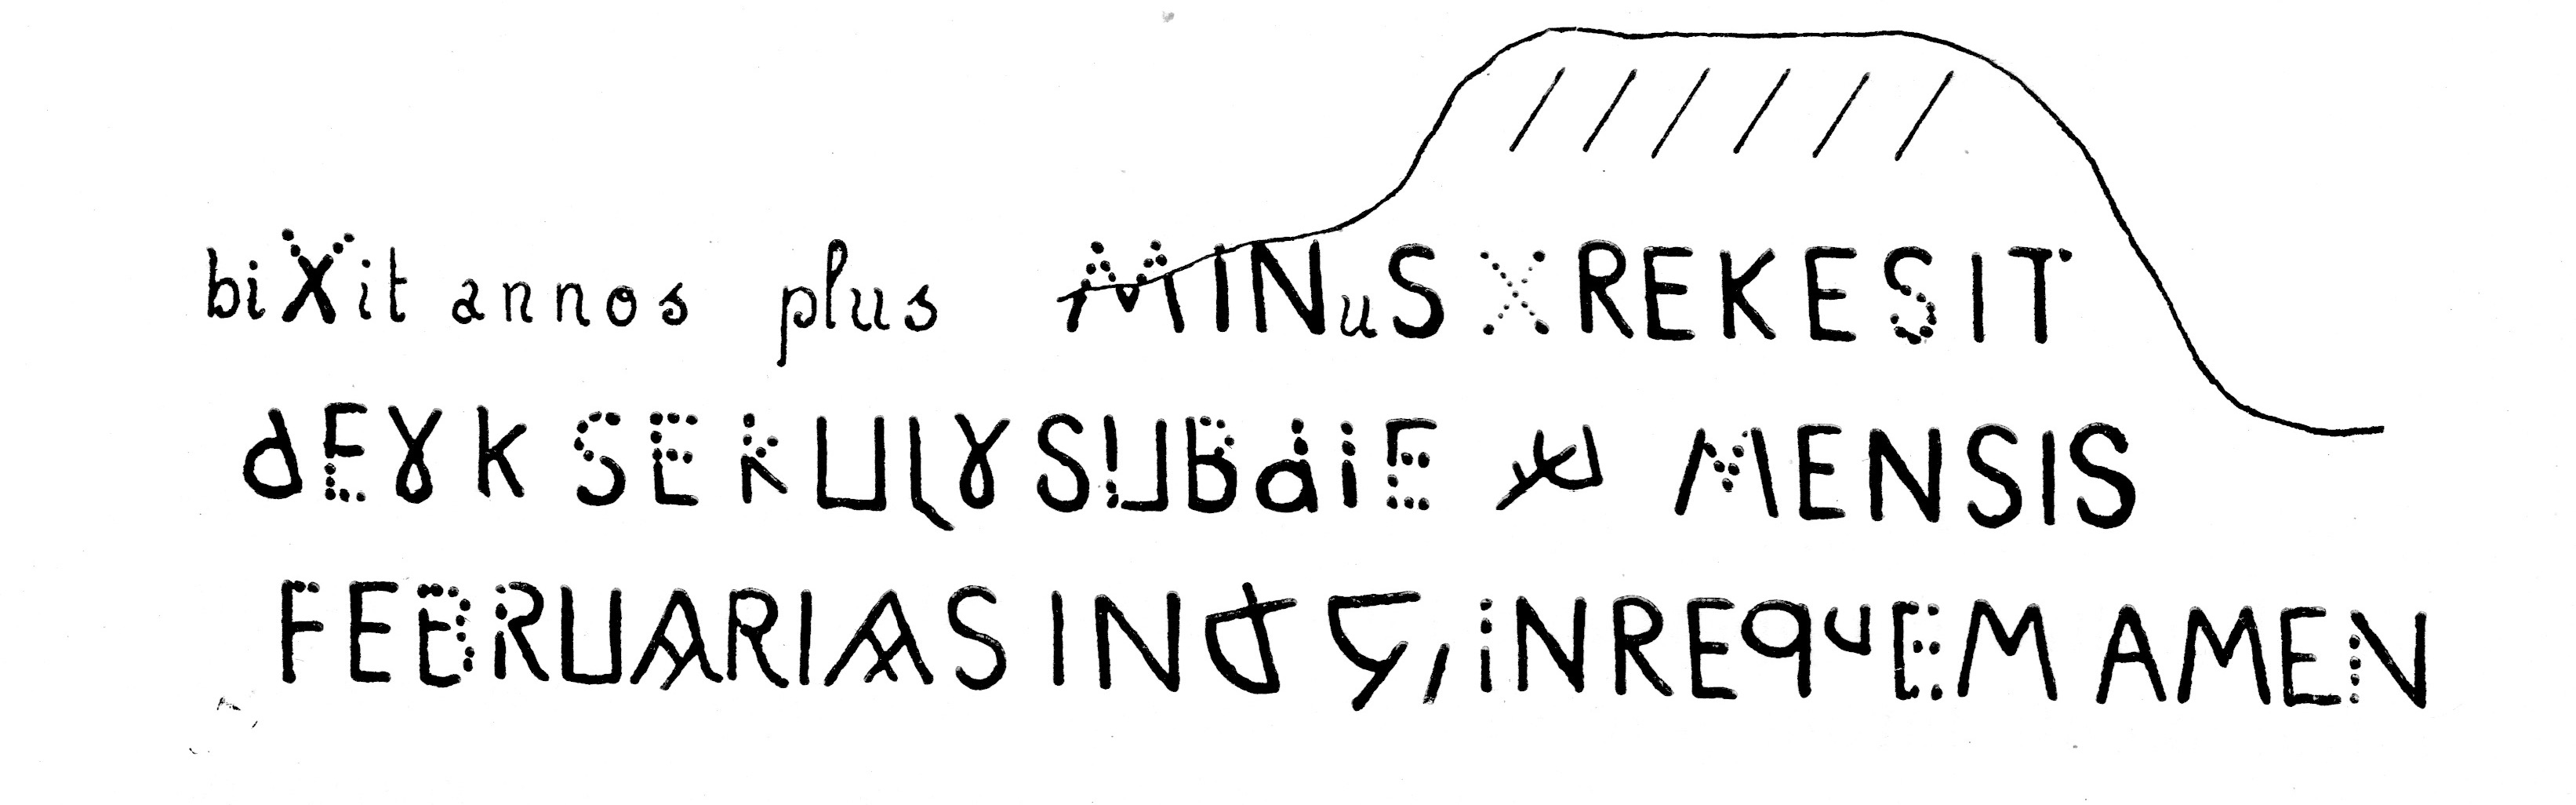 biXit annos plus MINuS X REKESIT
dEɣK SEKULɣ SUBdiE MENSIS
FEBRUARIAS INd INREqUEM AMEN